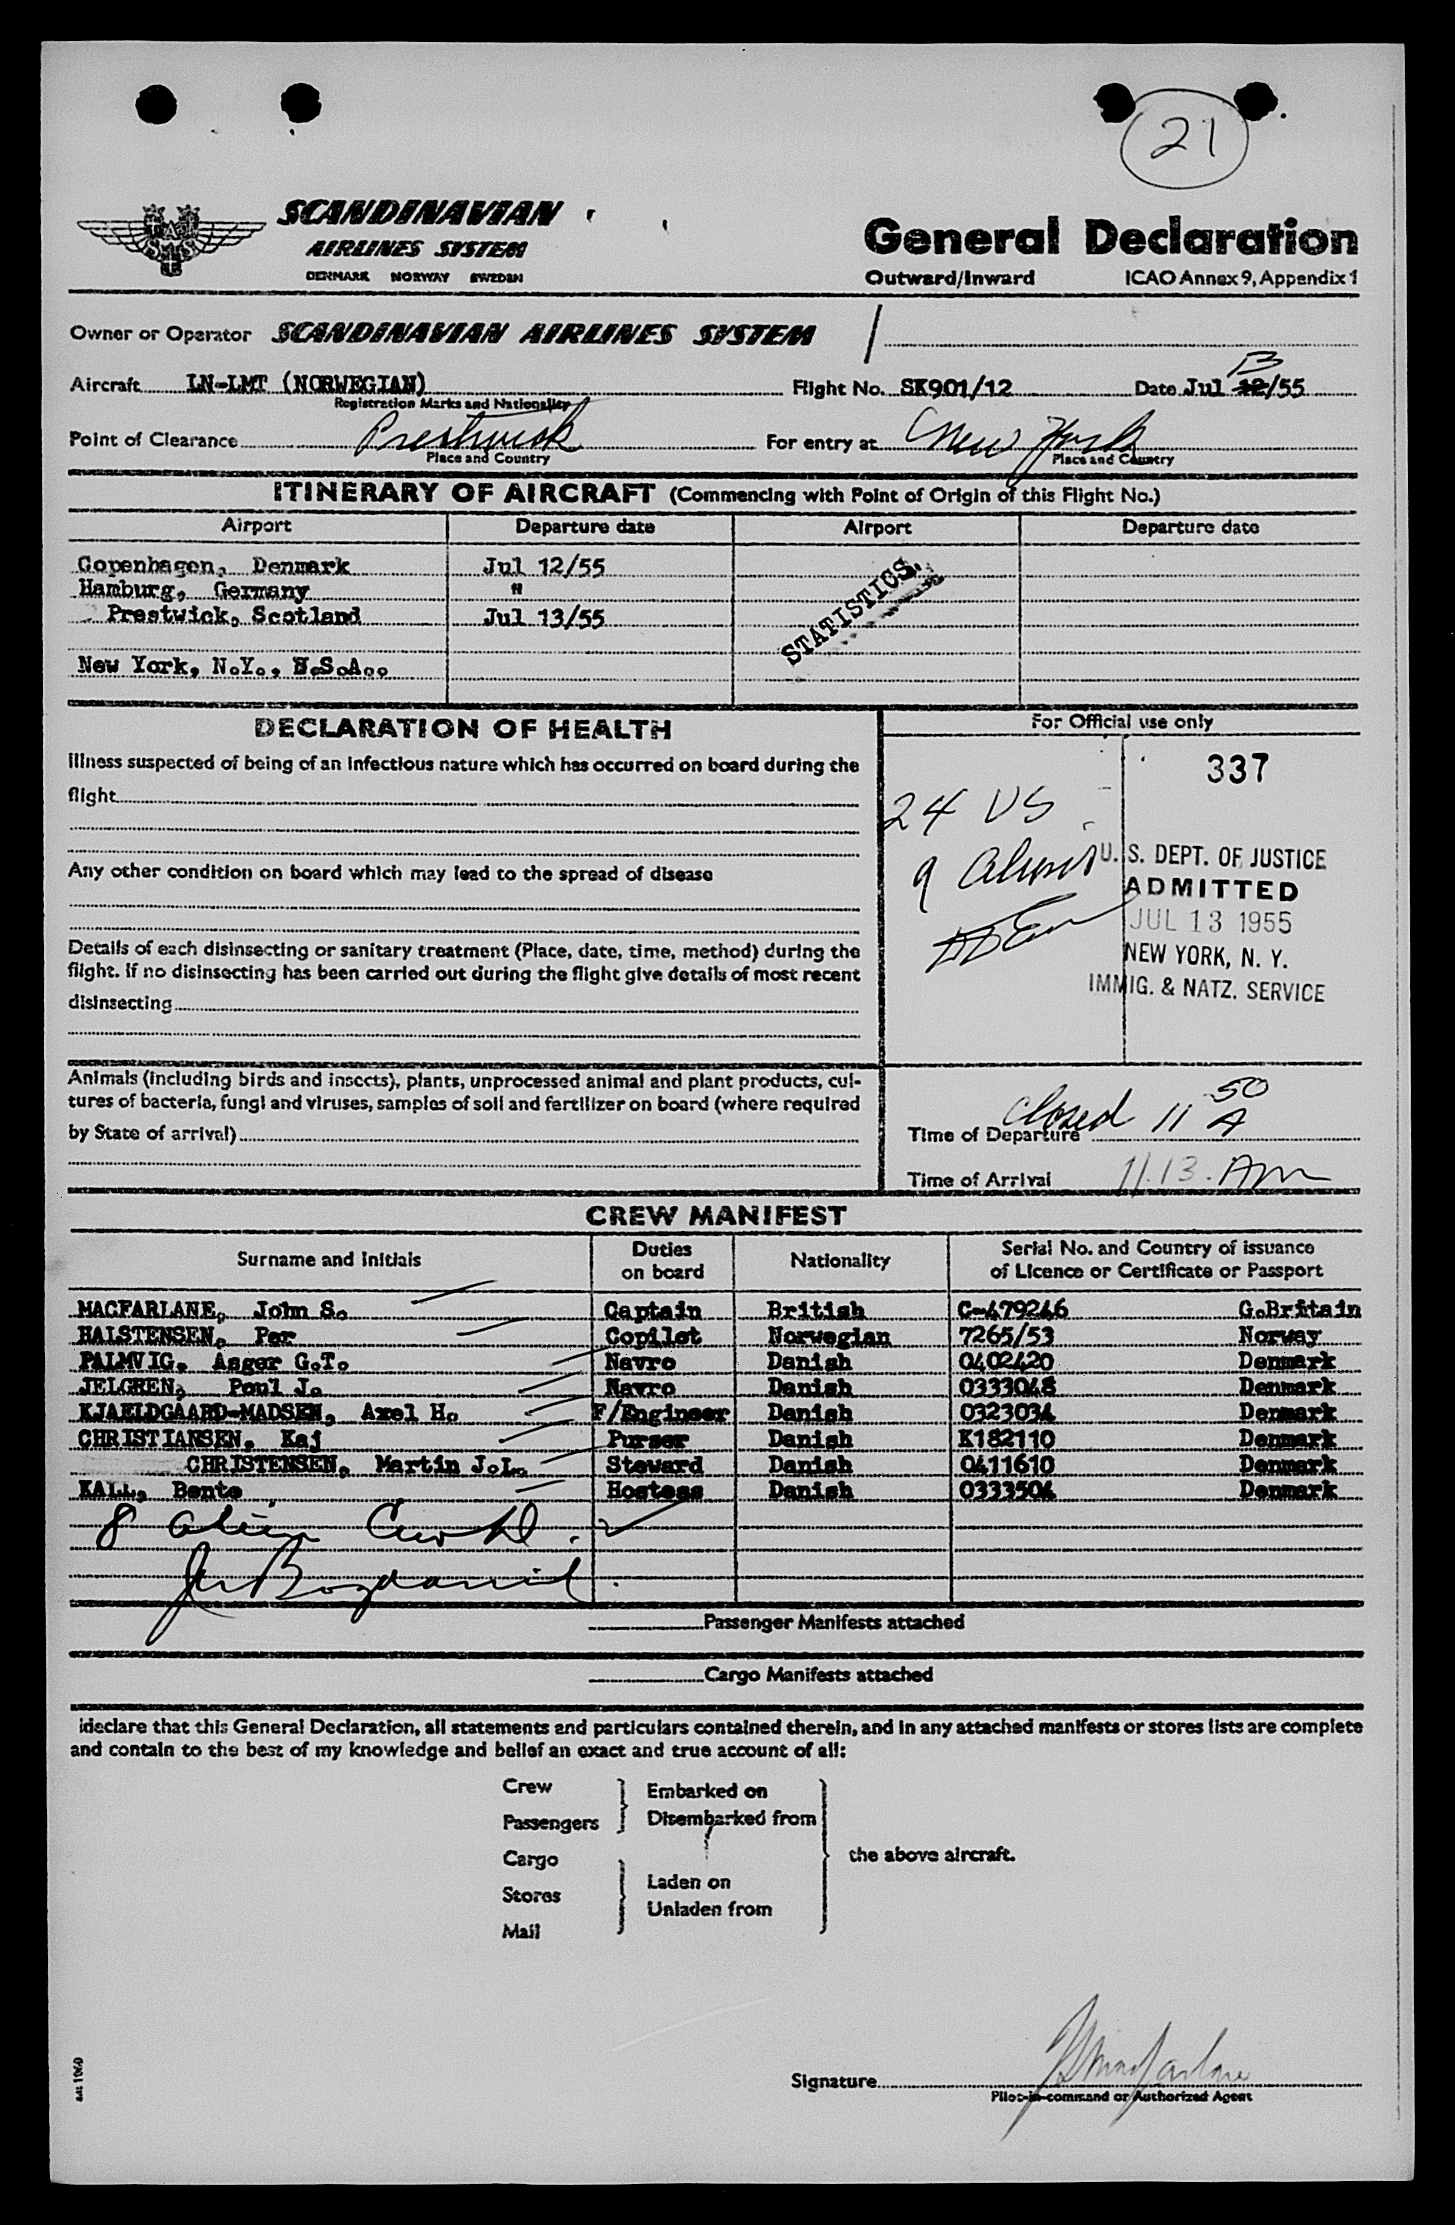 21
SCANDINAVIAN
AIRLINES SYSTEM
DENMARK NORWAY SWEDEN
General Declaration
Outward/Inward ICAO Annex 9, Appendix 1
Owner or Operator SCANDINAVIAN AIRLINES SYSTEM /
Aircraft LN-LMT (NORWEGIAN) Flight No. SK901/12 Date Jul 12/55 13
Registration Marks and Nationality
Point of Clearance Prestwick For entry at New York
Place and Country Place and Country
ITINERARY OF AIRCRAFT (Commencing with Point of Origin of this Flight No.)
Airport Departure date Airport Departure date
Copenhagen, Denmark Jul 12/55
Hamburg, Germany "
Prestwick, Scotland Jul 13/55
STATISTICS.
New York, N.Y., U.S.A..
DECLARATION OF HEALTH
Illness suspected of being of an infectious nature which has occurred on board during the
flight
Any other condition on board which may lead to the spread of disease
Details of each disinsecting or sanitary treatment (Place, date, time, method) during the
flight. If no disinsecting has been carried out during the flight give details of most recent
disinsecting
Animals (including birds and insects), plants, unprocessed animal and plant products, cul-
tures of bacteria, fungi and viruses, samples of soil and fertilizer on board (where required
by State of arrival)
For Official use only
337
24 US
9 Aliens
U. S. DEPT. OF JUSTICE
ADMITTED
JUL 13 1955
NEW YORK, N. Y.
IMMIG. & NATZ. SERVICE
Closed 11 50 A
Time of Departure
Time of Arrival 11.13. Am
CREW MANIFEST
Surname and Initials Duties on board Nationality Serial No. and Country of issuance of Licence or Certificate or Passport
MACFARLANE, John S. Captain British C-479246 G.Britain
HALSTENSEN, Per Copilot Norwegian 7265/53 Norway
PALMVIG, Asger G.T. Navro Danish 0402420 Denmark
JELGREN, Poul J. Navro Danish 0333048 Denmark
KJAELDGAARD-MADSEN, Axel H. F/Engineer Danish 0323034 Denmark
CHRISTIANSEN, Kaj Purser Danish K182110 Denmark
CHRISTENSEN, Martin J.L. Steward Danish 0411610 Denmark
KALL, Bente Hostess Danish 0333504 Denmark
8 alien
Passenger Manifests attached
Cargo Manifests attached
I declare that this General Declaration, all statements and particulars contained therein, and in any attached manifests or stores lists are complete
and contain to the best of my knowledge and belief an exact and true account of all:
Crew Embarked on
Passengers Disembarked from
the above aircraft.
Cargo
Stores Laden on
Unladen from
Mail
Signature JSMacfarlane
Pilot-in-command or Authorized Agent